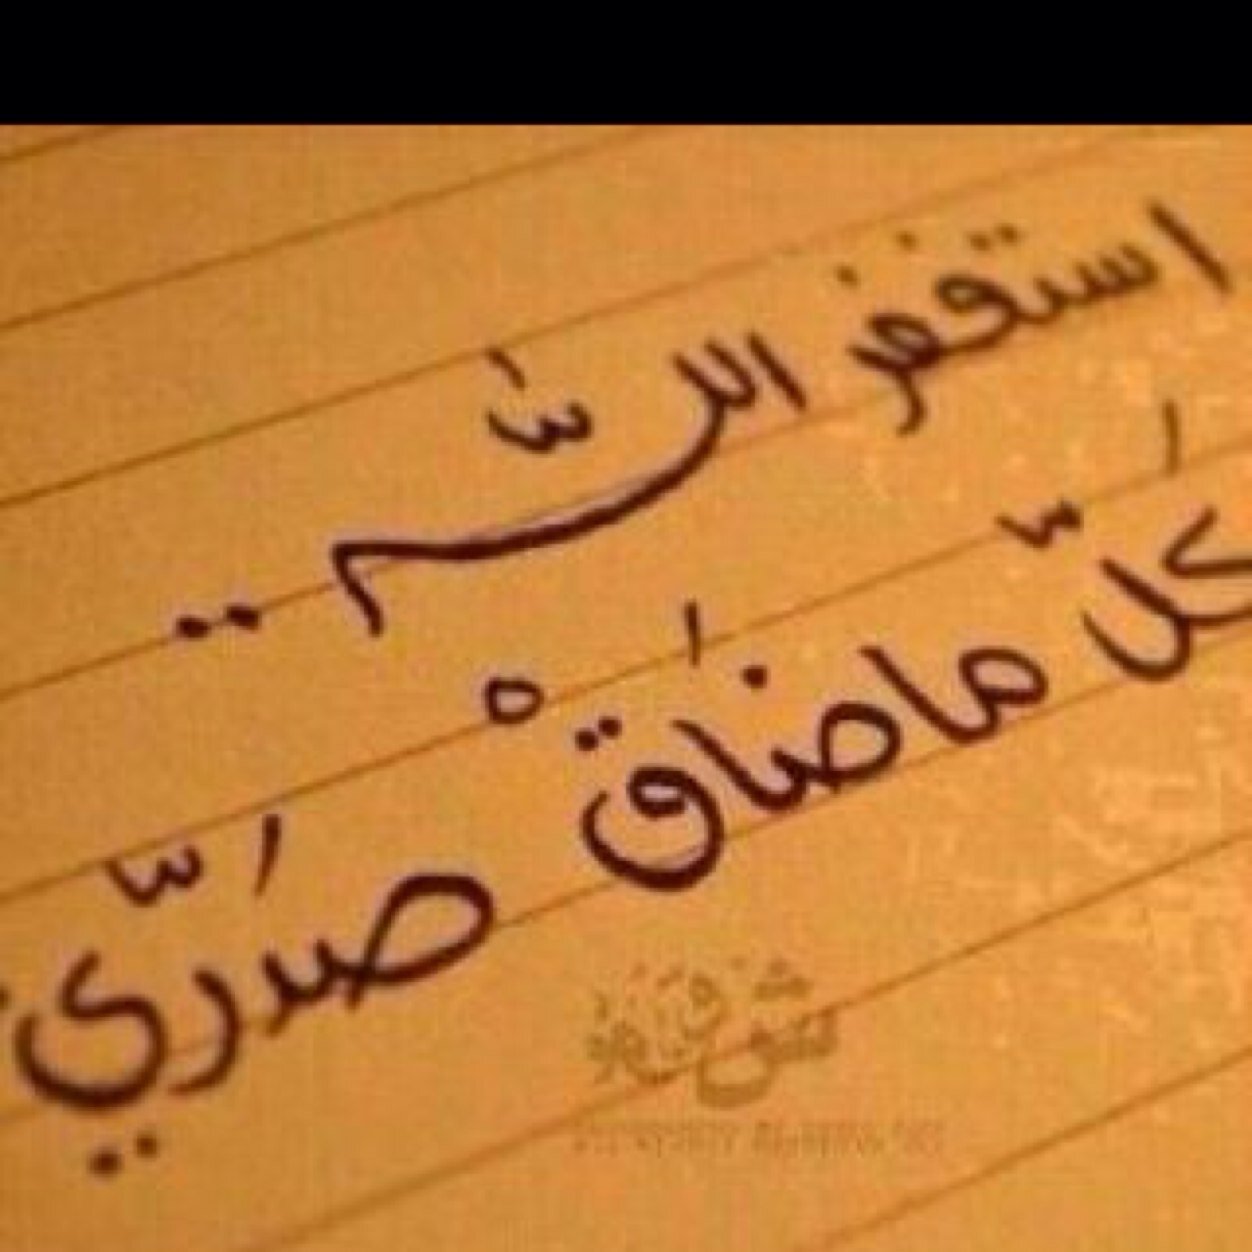 استغفر اللّٰه ..
كلّ ما ضاقْ صَدريّ